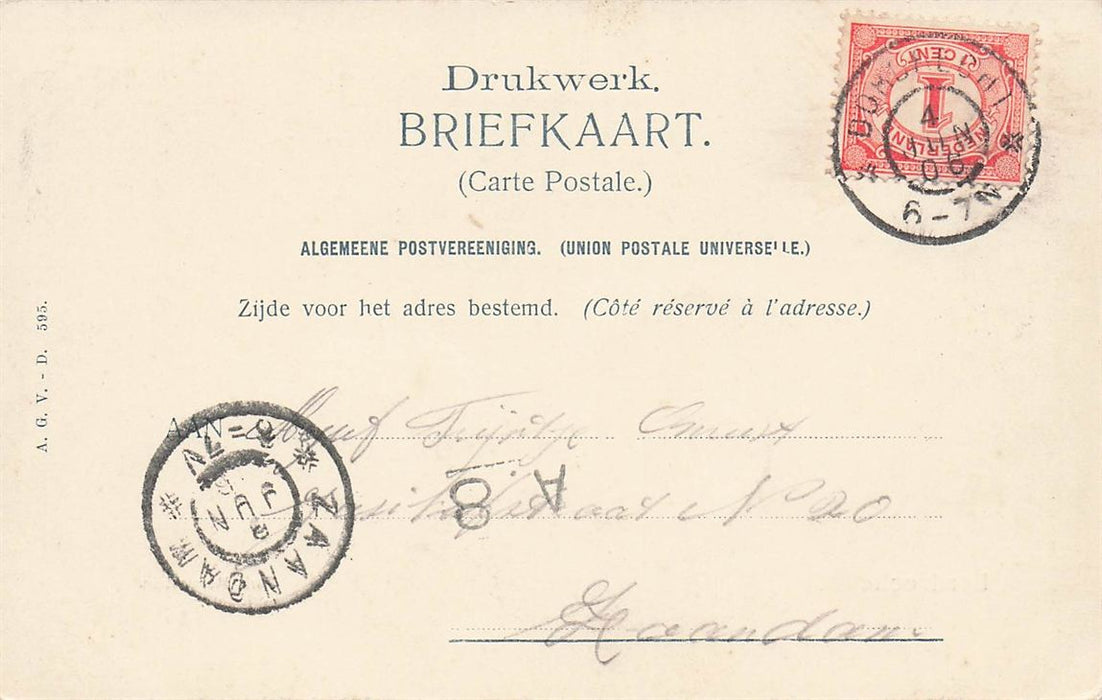 Drukwerk.
BRIEFKAART.
(Carte Postale.)
ALGEMEENE POSTVEREENIGING. (UNION POSTALE UNIVERSELLE.)
Zijde voor het adres bestemd. (Côté réservé à l'adresse.)
A. G. V. - D. 595.
1 CENT
1
NEDERLAND
4
JUN
06
6-7N
AAN
Trijntje
straat No 20
Zaandam.
8 A
ZAANDAM
JUN